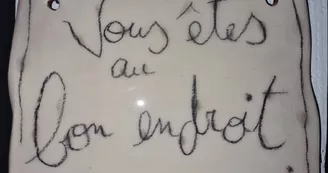 Vous êtes
au
bon endroit